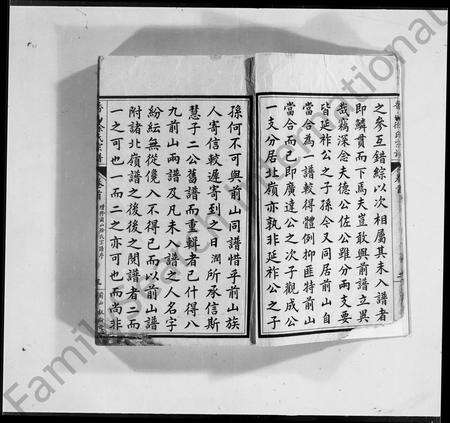 之參互錯綜以次相屬其未入譜者
即鱗貫而下焉夫豈敢與前譜立異
哉竊深念夫德公佐公雖分兩支要
皆延祚公之子孫今又同居前山自
當合為一譜較得體例抑匪特前山
當合而已即廣達公之次子觀成公
一支分居北嶺亦孰非延祚公之子
孫何不可與前山同譜惜乎前山族
人寄信較遲寄到之日潤所承信斯
慧子二公舊譜而重輯者已什得八
九前山兩譜及凡未入譜之人名字
紛紜無從儳入不得已而以前山譜
附諸北嶺譜之後後之閱譜者二而
一之可也一而二之亦可也而尚非
卷首
Family Search International